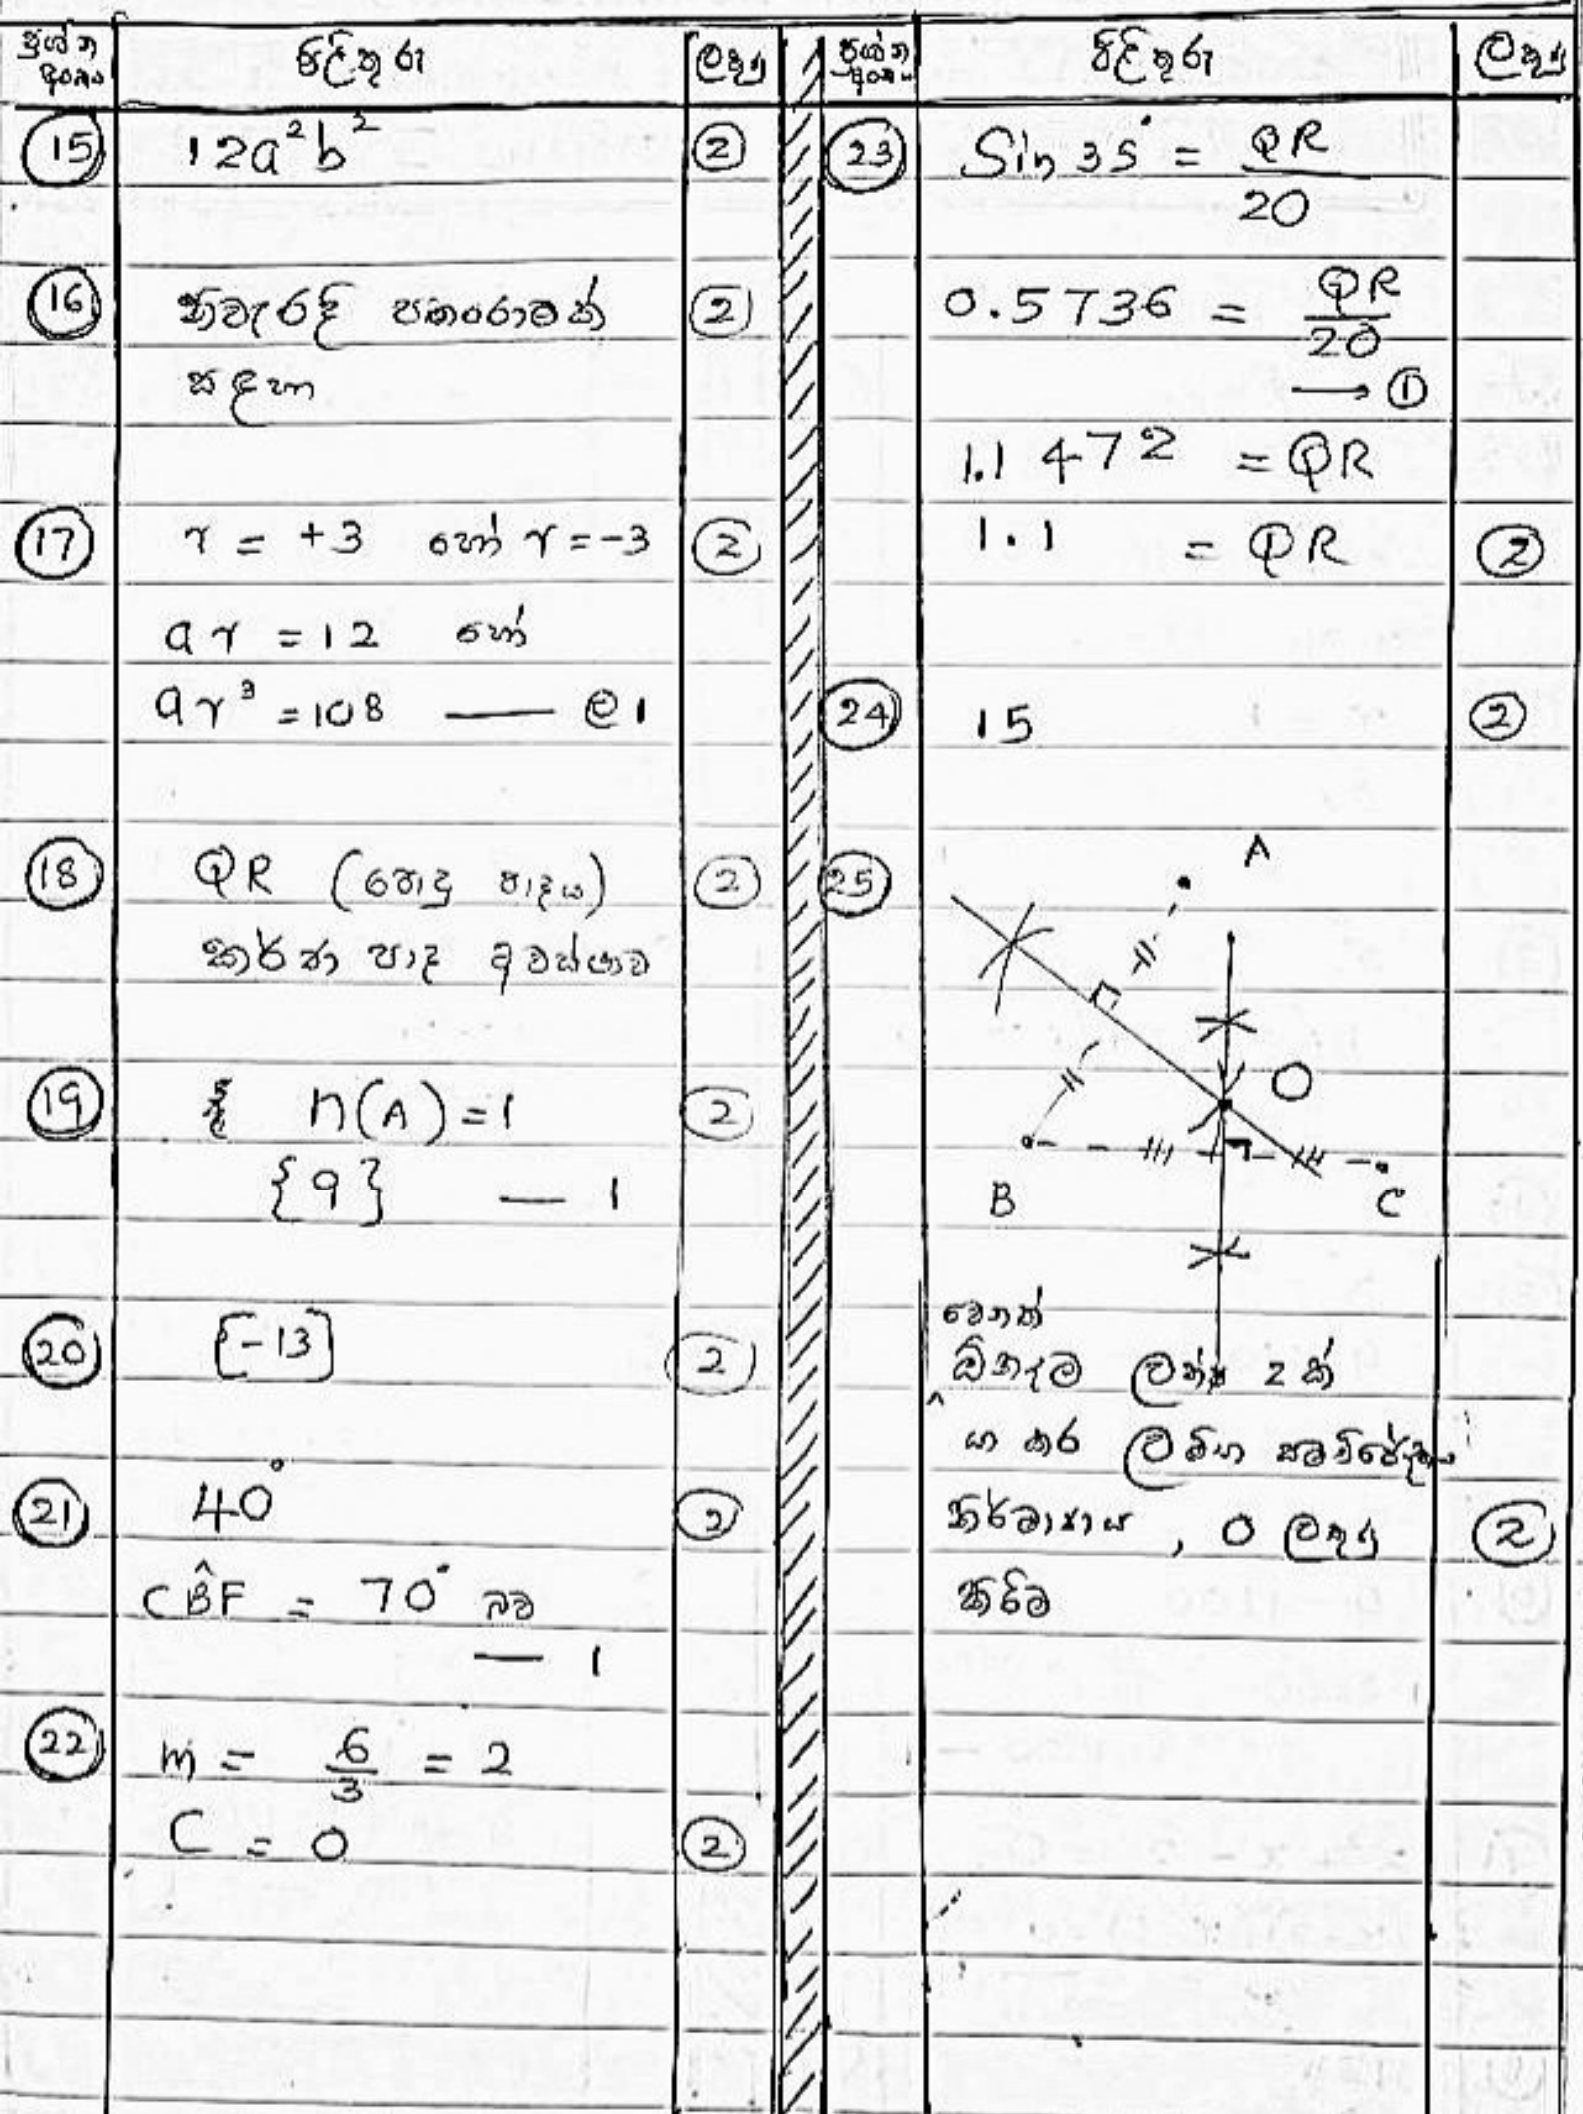 ප්‍රශ්න අංකය පිළිතුරු ලකුණු
15 12a²b² 2
16 නිවැරදි පතරොමක් 2
සඳහා
17 r = +3 හෝ r = -3 2
ar = 12 හෝ
ar³ = 108 — ල 1
18 QR (පොදු පාදය) 2
කර්ණ පාද අවස්ථාව
19 n(A) = 1 2
{9} — 1
20 [-13] 2
21 40° 2
CB̂F = 70° බව
— 1
22 m = 6/3 = 2
C = 0 2
ප්‍රශ්න අංකය පිළිතුරු ලකුණු
23 Sin 35° = QR/20
0.5736 = QR/20
→ 1
1.1472 = QR
1.1 = QR 2
24 15 2
25 A
O
B C
වෙනත්
ඕනෑම 2 ක්
යා කර ලම්භ සමච්ඡේදක
නිර්මාණය, O ලකුණු 2
කිරීම